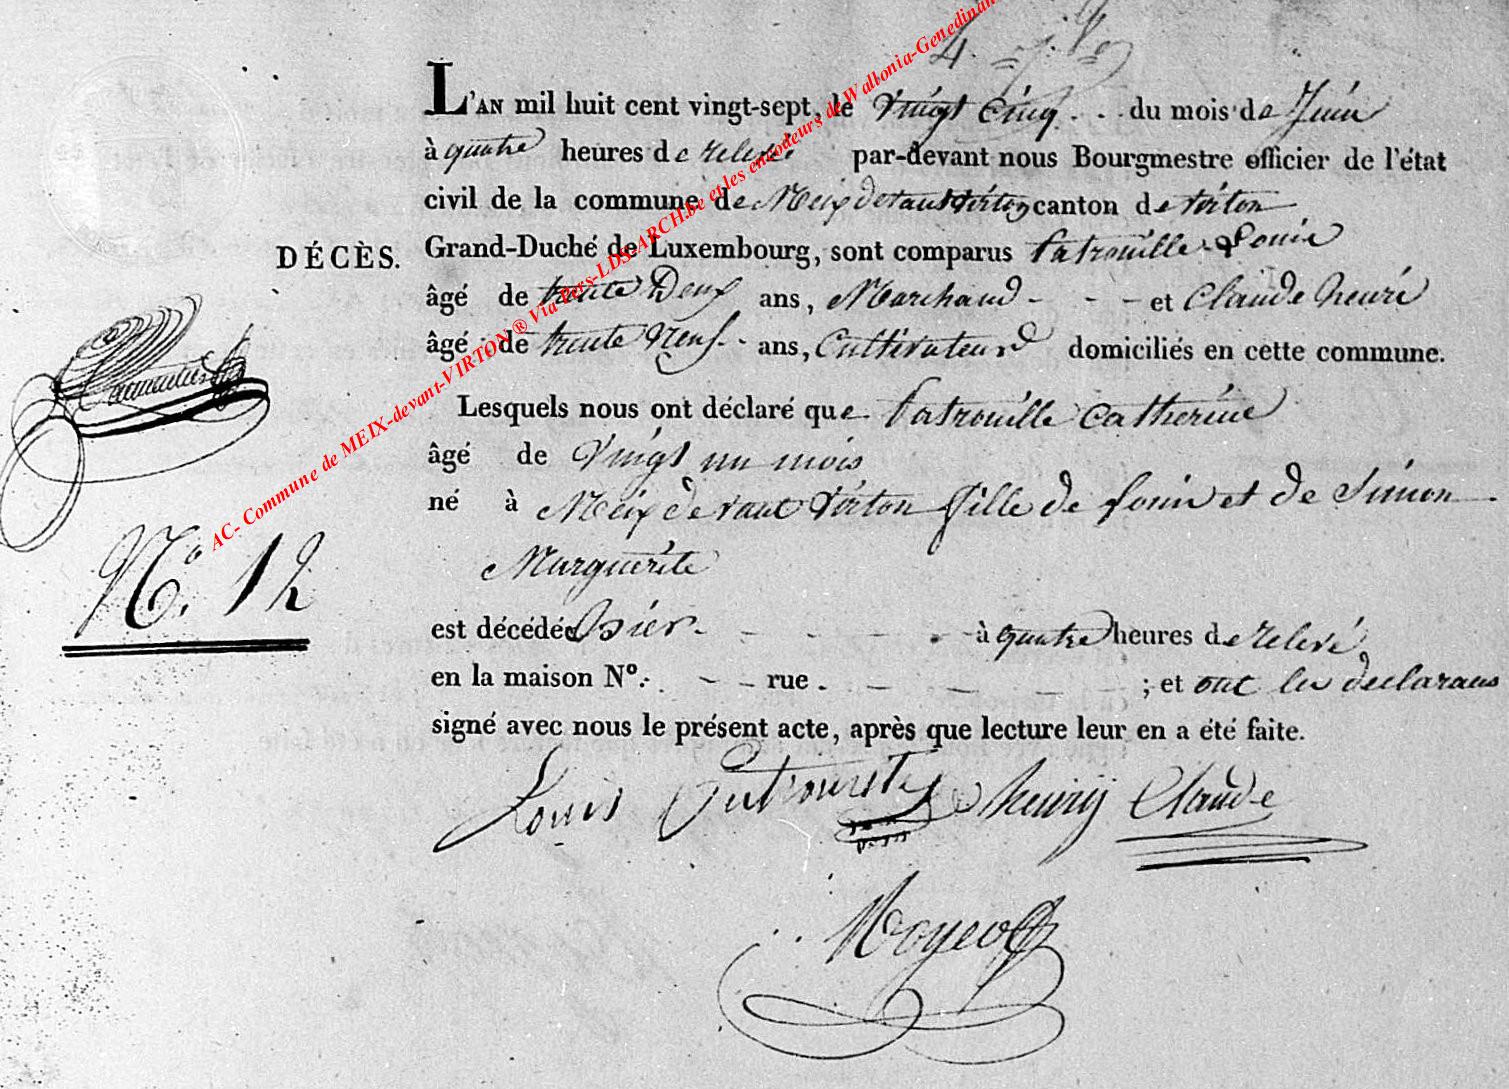 4.
L'AN mil huit cent vingt-sept, le vingt cinq du mois de Juin
à quatre heures de relevé par-devant nous Bourgmestre officier de l'état
civil de la commune de Meix devant virton canton de virton
DÉCÈS.
Grand-Duché de Luxembourg, sont comparus Patrouille Louis
âgé de trente Deux ans, Marchand - - - et Claude henri
âgé de trente Neuf ans, Cultivateurs domiciliés en cette commune.
Lesquels nous ont déclaré que Patrouille Catherine
âgé de Vingt un mois
né à Meix devant Virton fille de Louis et de Simon
Marguerite
N°. 12
est décédée hier - - - - à quatre heures de relevé
en la maison N°. - - rue - - - - ; et ont les declarans
signé avec nous le présent acte, après que lecture leur en a été faite.
Louis Patrouille henrÿ Claude
AC- Commune de MEIX-devant-VIRTON ® Via Pers-LDS-ARCH.be et les encodeurs de Wallonia-Genedinan